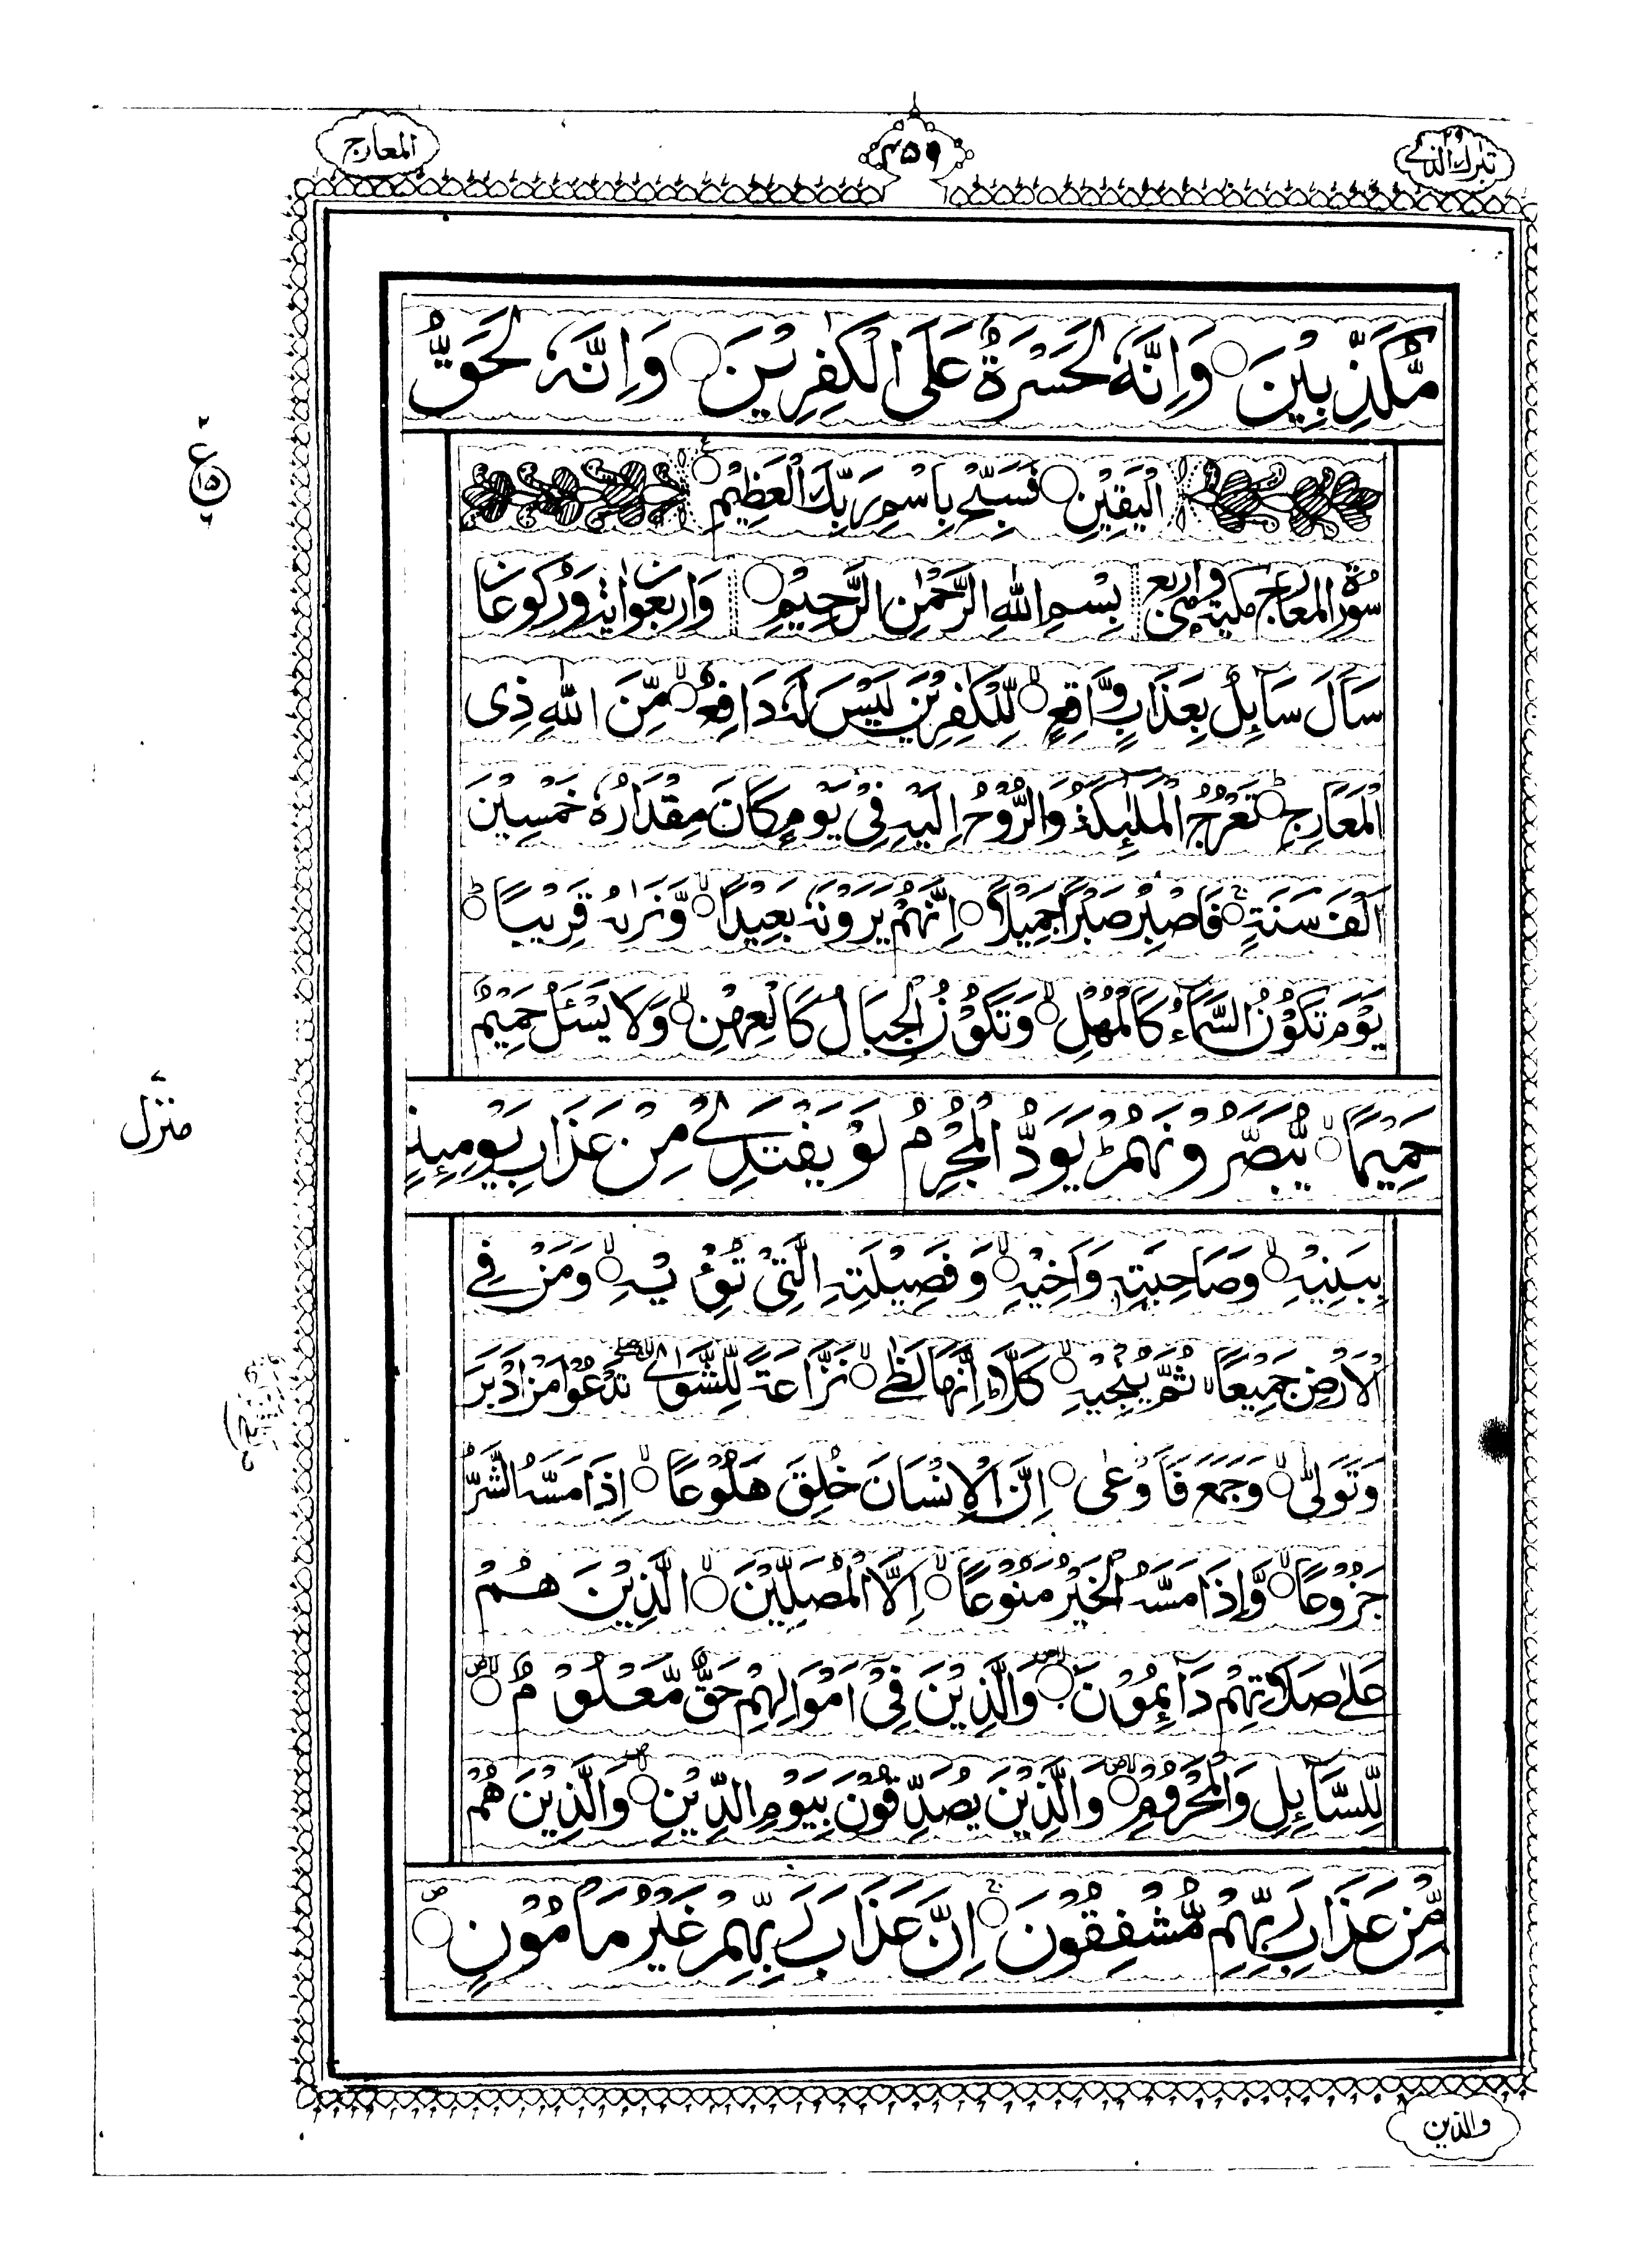 تبٰرك الذی ۲۹
۴۵۹
المعارج
مُّكَذِّبِيْنَ ۝ وَاِنَّهٗ لَحَسْرَةٌ عَلَى الْكٰفِرِيْنَ ۝ وَاِنَّهٗ لَحَقُّ
الْيَقِيْنِ ۝ فَسَبِّحْ بِاسْمِ رَبِّكَ الْعَظِيْمِ ۝
ع ۲ ۱۵ ۶
سُوْرَةُ المعارج مكية وهى اربع بِسْمِ اللّٰهِ الرَّحْمٰنِ الرَّحِيْمِ ۝ وَاربعون اٰية وركوعان
سَاَلَ سَآئِلٌۢ بِعَذَابٍ وَّاقِعٍ ۝ لِّلْكٰفِرِيْنَ لَيْسَ لَهٗ دَافِعٌ ۝ مِّنَ اللّٰهِ ذِى
الْمَعَارِجِ ۝ تَعْرُجُ الْمَلٰٓئِكَةُ وَالرُّوْحُ اِلَيْهِ فِىْ يَوْمٍ كَانَ مِقْدَارُهٗ خَمْسِيْنَ
اَلْفَ سَنَةٍ ۝ فَاصْبِرْ صَبْرًا جَمِيْلًا ۝ اِنَّهُمْ يَرَوْنَهٗ بَعِيْدًا ۝ وَّنَرٰىهُ قَرِيْبًا ۝
يَوْمَ تَكُوْنُ السَّمَآءُ كَالْمُهْلِ ۝ وَتَكُوْنُ الْجِبَالُ كَالْعِهْنِ ۝ وَلَا يَسْئَلُ حَمِيْمٌ
حَمِيْمًا ۝ يُّبَصَّرُوْنَهُمْ يَوَدُّ الْمُجْرِمُ لَوْ يَفْتَدِىْ مِنْ عَذَابِ يَوْمِئِذٍۢ
منزل ۷
بِبَنِيْهِ ۝ وَصَاحِبَتِهٖ وَاَخِيْهِ ۝ وَفَصِيْلَتِهِ الَّتِىْ تُؤْيْهِ ۝ وَمَنْ فِى
الْاَرْضِ جَمِيْعًا ثُمَّ يُنْجِيْهِ ۝ كَلَّا اِنَّهَا لَظٰى ۝ نَزَّاعَةً لِّلشَّوٰى تَدْعُوْا مَنْ اَدْبَرَ
وَتَوَلّٰى ۝ وَجَمَعَ فَاَوْعٰى ۝ اِنَّ الْاِنْسَانَ خُلِقَ هَلُوْعًا ۝ اِذَا مَسَّهُ الشَّرُّ
جَزُوْعًا ۝ وَّاِذَا مَسَّهُ الْخَيْرُ مَنُوْعًا ۝ اِلَّا الْمُصَلِّيْنَ ۝ الَّذِيْنَ هُمْ
عَلٰى صَلَاتِهِمْ دَآئِمُوْنَ ۝ وَالَّذِيْنَ فِىْ اَمْوَالِهِمْ حَقٌّ مَّعْلُوْمٌ ۝
لِّلسَّآئِلِ وَالْمَحْرُوْمِ ۝ وَالَّذِيْنَ يُصَدِّقُوْنَ بِيَوْمِ الدِّيْنِ ۝ وَالَّذِيْنَ هُمْ
مِّنْ عَذَابِ رَبِّهِمْ مُّشْفِقُوْنَ ۝ اِنَّ عَذَابَ رَبِّهِمْ غَيْرُ مَاْمُوْنٍ ۝
والذين